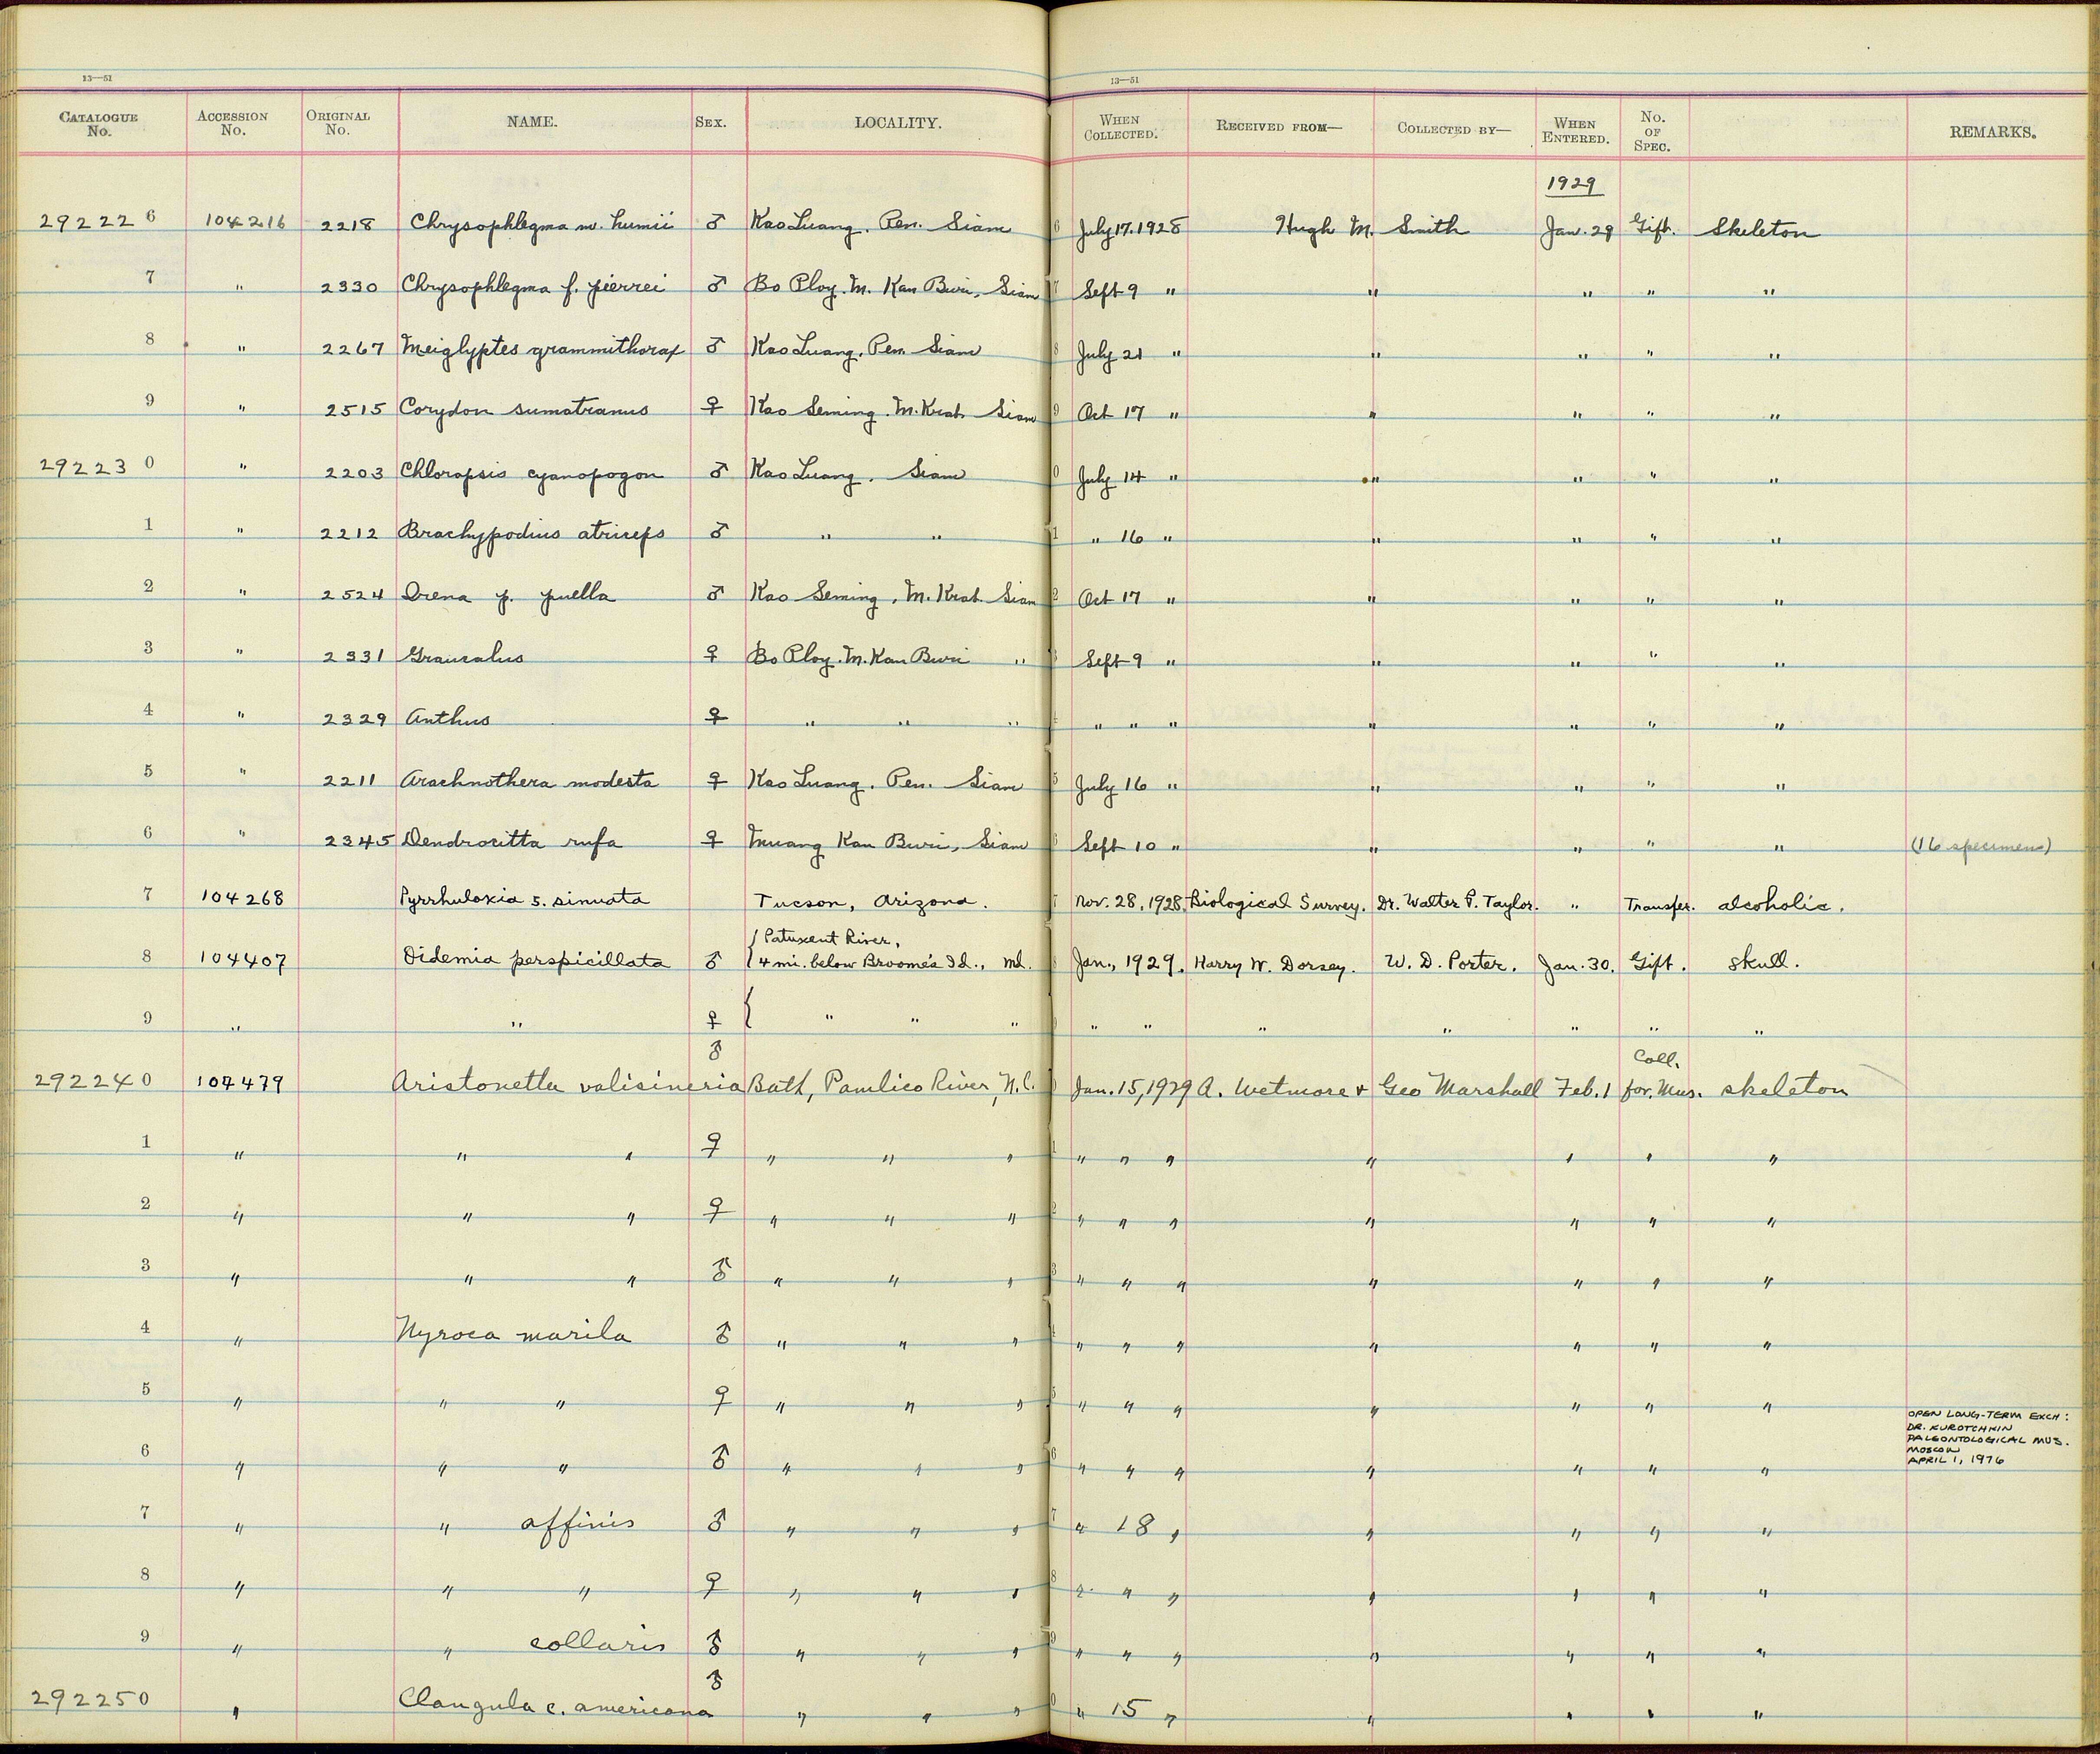 13—51
13—51
CATALOGUE No. ACCESSION No. ORIGINAL No. NAME. SEX. LOCALITY. WHEN COLLECTED. RECEIVED FROM— COLLECTED BY— WHEN ENTERED. No. OF SPEC. REMARKS.
1929
292226 104216 2218 Chrysophlegma m. humii ♂ Kao Luang. Pen. Siam 6 July 17. 1928 Hugh M. Smith Jan. 29 Gift. Skeleton
7 " 2330 Chrysophlegma f. pierrei ♂ Bo Ploy. M. Kan Buri, Siam 7 Sept 9 " " " " "
8 " 2267 Meiglyptes grammithorax ♂ Kao Luang. Pen. Siam 8 July 21 " " " " "
9 " 2515 Corydon sumatranus ♀ Kao Seming. M. Krat. Siam 9 Oct 17 " " " " "
292230 " 2203 Chloropsis cyanopogon ♂ Kao Luang. Siam 0 July 14 " " " " "
1 " 2212 Brachypodius atriceps ♂ " " 1 " 16 " " " " "
2 " 2524 Irena p. puella ♂ Kao Seming, M. Krat. Siam 2 Oct 17 " " " " "
3 " 2331 Graucalus ♀ Bo Ploy. M. Kan Buri " 3 Sept 9 " " " " "
4 " 2329 Anthus ♀ " " " " " " " " " "
5 " 2211 Arachnothera modesta ♀ Kao Luang. Pen. Siam 5 July 16 " " " " "
6 " 2345 Dendrocitta rufa ♀ Muang Kan Buri, Siam 6 Sept 10 " " " " " (16 specimens)
7 104268 Pyrrhuloxia s. sinuata Tucson, Arizona. 7 Nov. 28, 1928. Biological Survey. Dr. Walter P. Taylor. " Transfer. alcoholic.
{ Patuxent River,
8 104407 Oidemia perspicillata ♂ 4 mi. below Broome's Id., Md. Jan., 1929. Harry W. Dorsey. W. D. Porter. Jan. 30. Gift. skull.
9 " " ♀ { " " " " " " " " " "
♂ Coll.
292240 104479 Aristonetta valisineria Bath, Pamlico River, N.C. Jan. 15, 1929 A. Wetmore & Geo Marshall Feb. 1 for. Mus. skeleton
1 " " " ♀ " " " 1 " " " " " " "
2 " " " ♀ " " " 2 " " " " " " "
3 " " " ♂ " " " 3 " " " " " " "
4 " Nyroca marila ♂ " " " " " " " " " "
5 " " " ♀ " " " 5 " " " " " " "
OPEN LONG-TERM EXCH:
DR. KUROTCHKIN
PALEONTOLOGICAL MUS.
MOSCOW
APRIL 1, 1976
6 " " " ♂ " " " 6 " " " " " " "
7 " " affinis ♂ " " " 7 " 18 " " " " "
8 " " " ♀ " " " 8 " " " " " " "
9 " " collaris ♂ " " " 9 " " " " " " "
♂
292250 " Clangula c. americana " " " 0 " 15 " " " " "